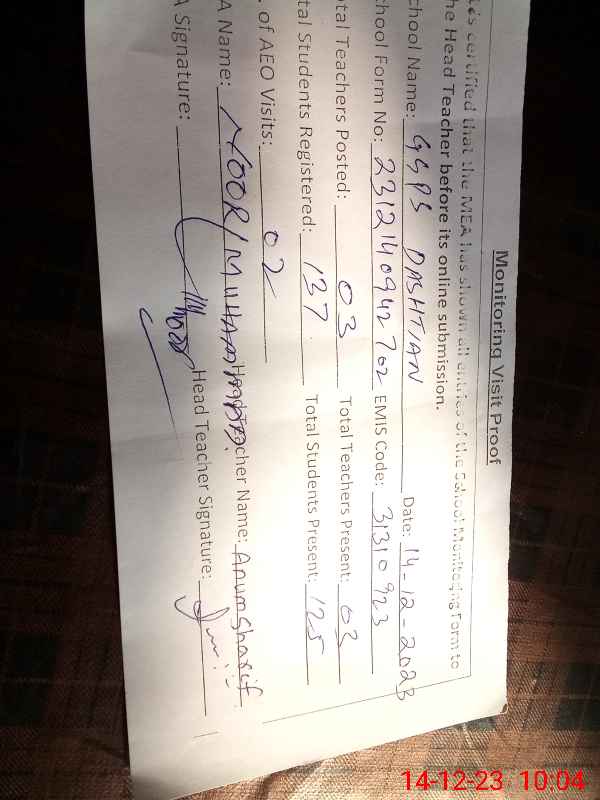 Monitoring Visit Proof
It is certified that the MEA has shown all entries of the School Monitoring Form to
he Head Teacher before its online submission.
chool Name: GGPS DASHTIAN Date: 14-12-2023
chool Form No: 2312140942702 EMIS Code: 31310923
otal Teachers Posted: 03 Total Teachers Present: 03
tal Students Registered: 137 Total Students Present: 125
. of AEO Visits: 02
A Name: NOOR MUHAMMAD. Head Teacher Name: Anum Sharif
A Signature: Head Teacher Signature:
14-12-23 10:04